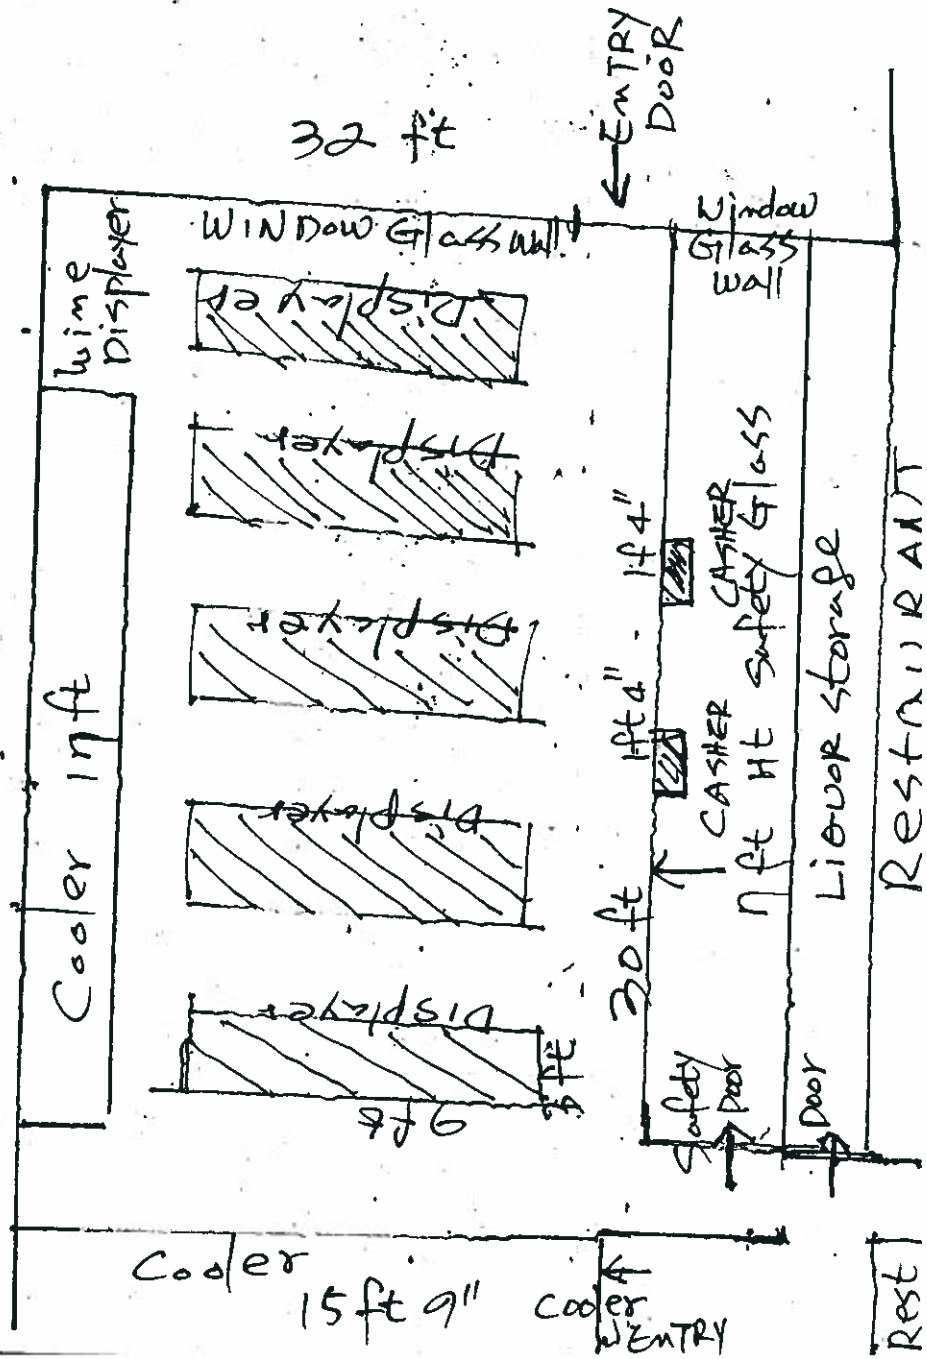 32 ft
EnTRY
DOOR
Wine
Displayer
WINDOW Glass Wall
Window
Glass
Wall
Displayer
Displayer
Displayer
Displayer
Displayer
Cooler
1ft4"
1f4"
CASHER
CASHER
30 ft
Ht Safety Glass
LiQUOR Storage
RestAURANT
9 ft
ft
Safety
Door
Door
Cooler
15ft 9"
Cooler
EnTRY
Rest